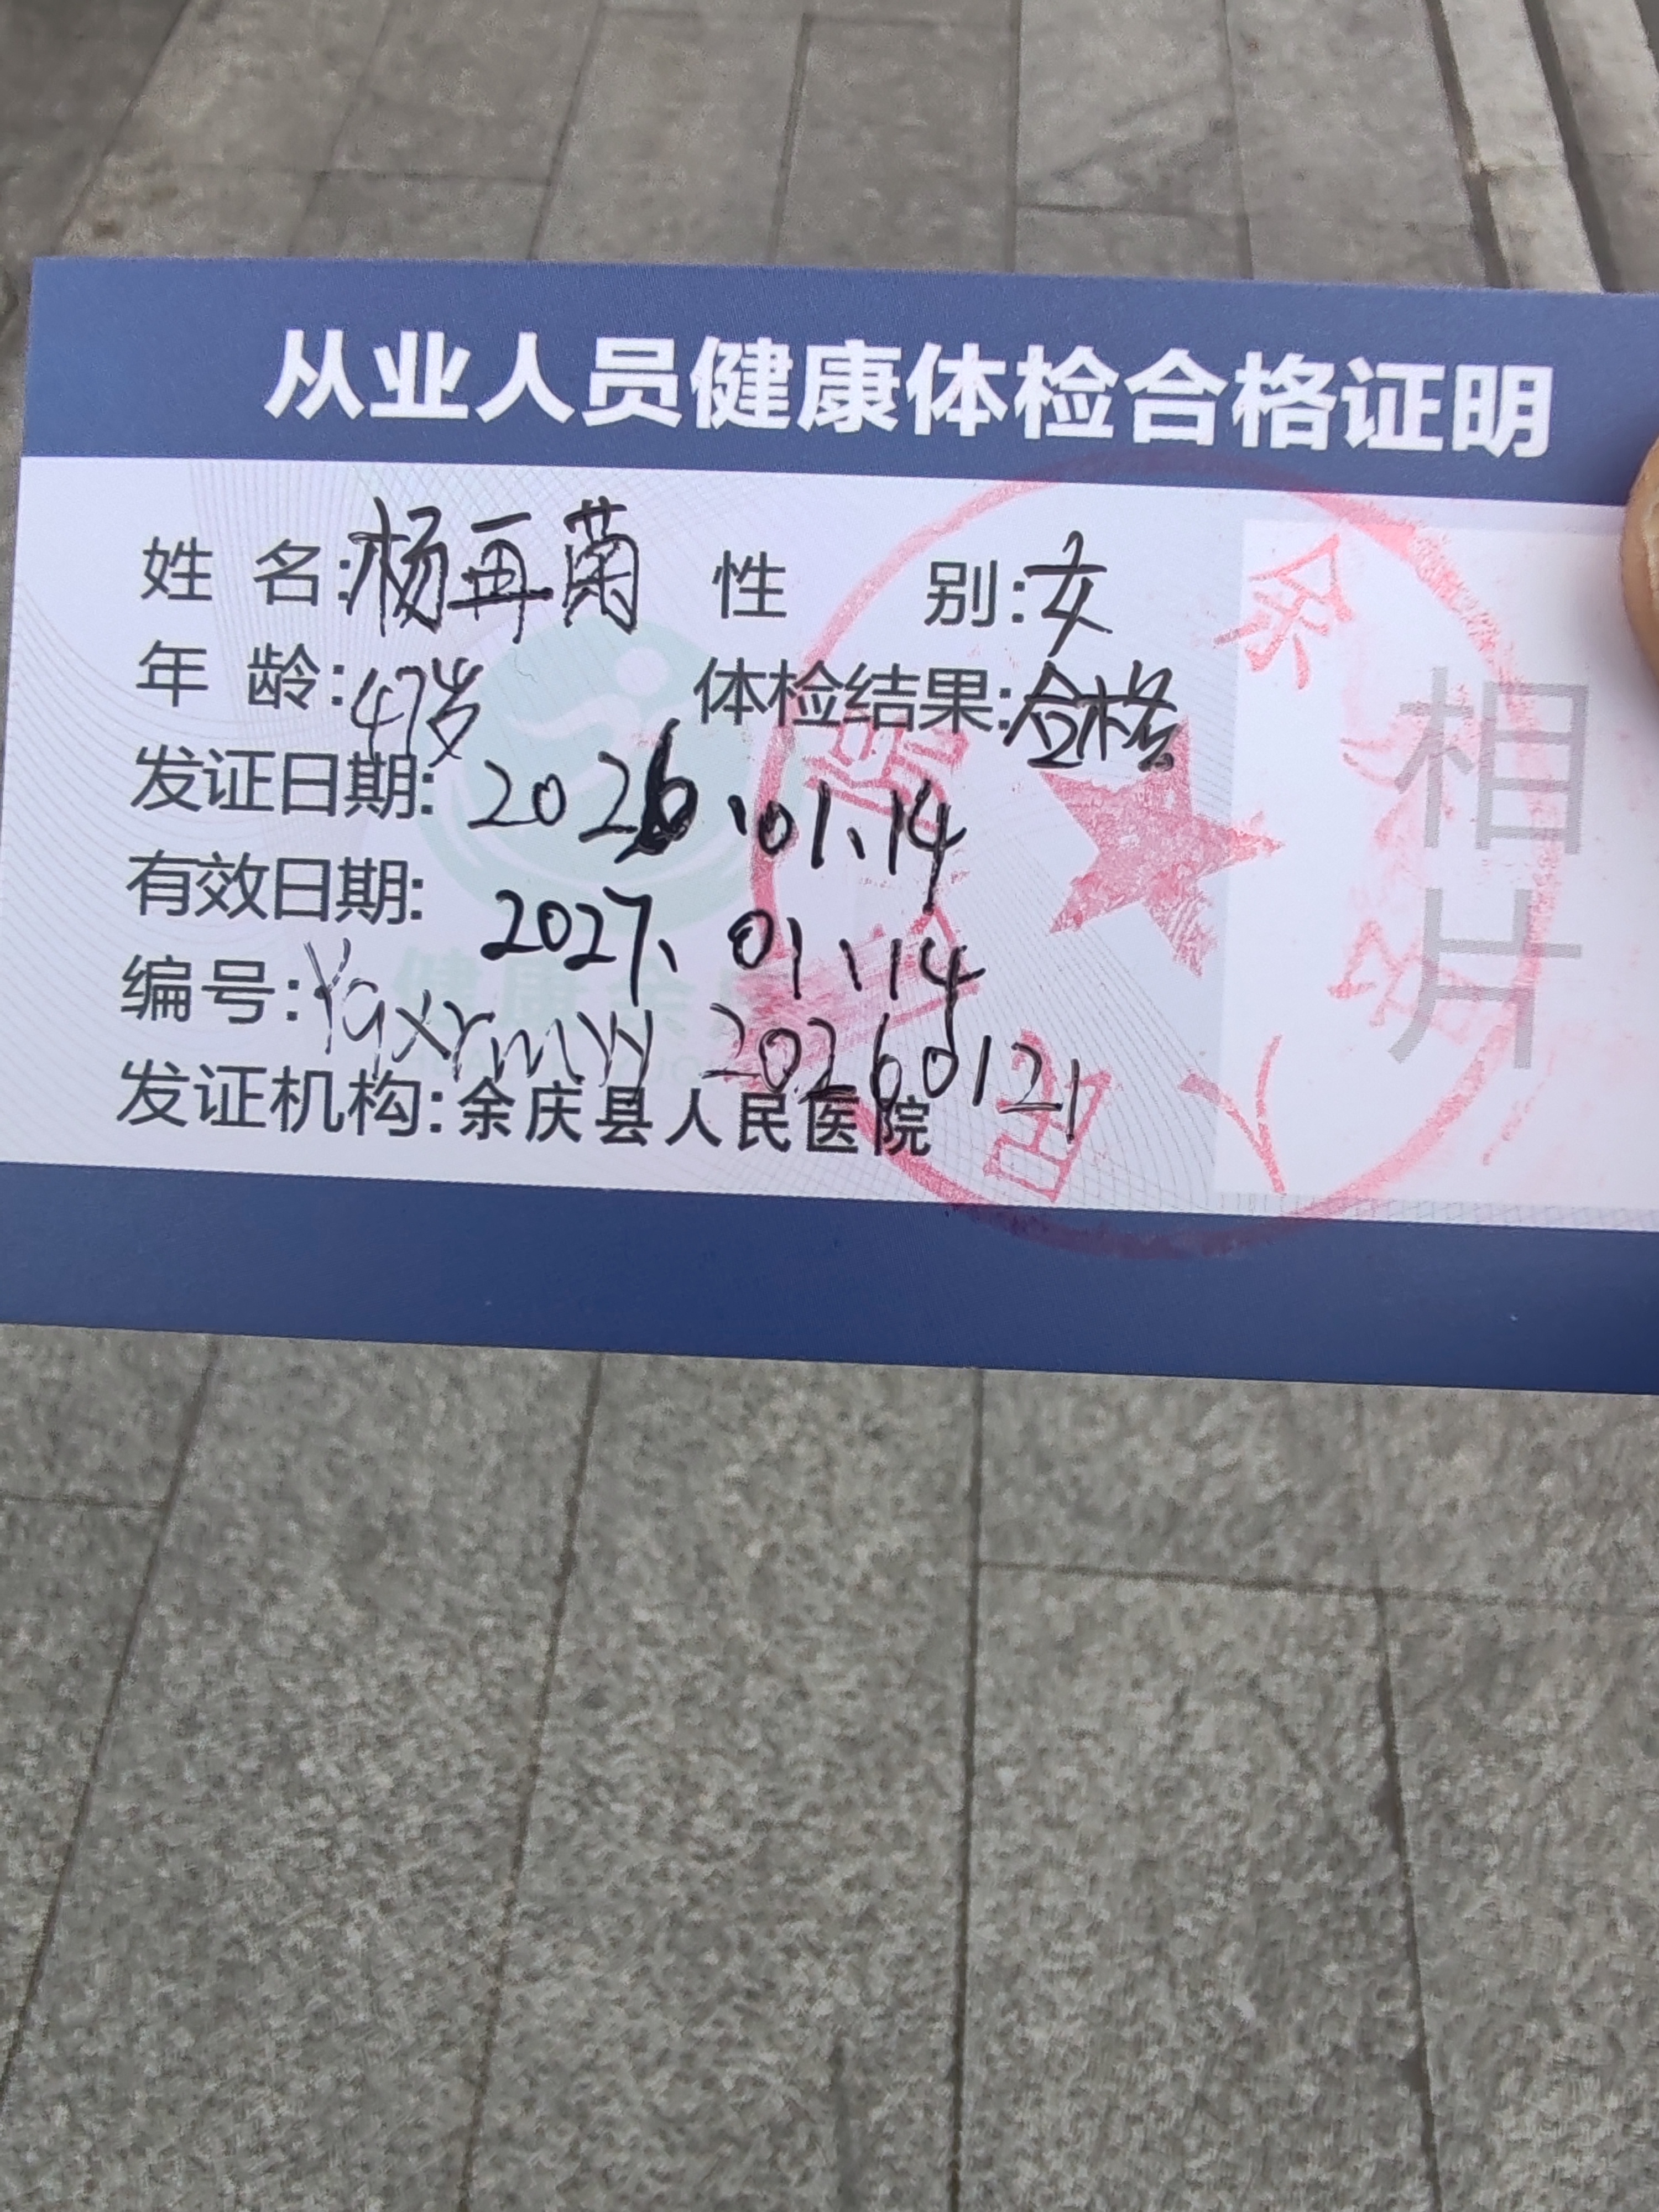 从业人员健康体检合格证明
姓 名:杨再菊 性 别:女
年 龄:47岁 体检结果:合格
发证日期: 2026.01.14
有效日期: 2027.01.14
编号:Yqxrmyy 20260121
发证机构:余庆县人民医院
相片